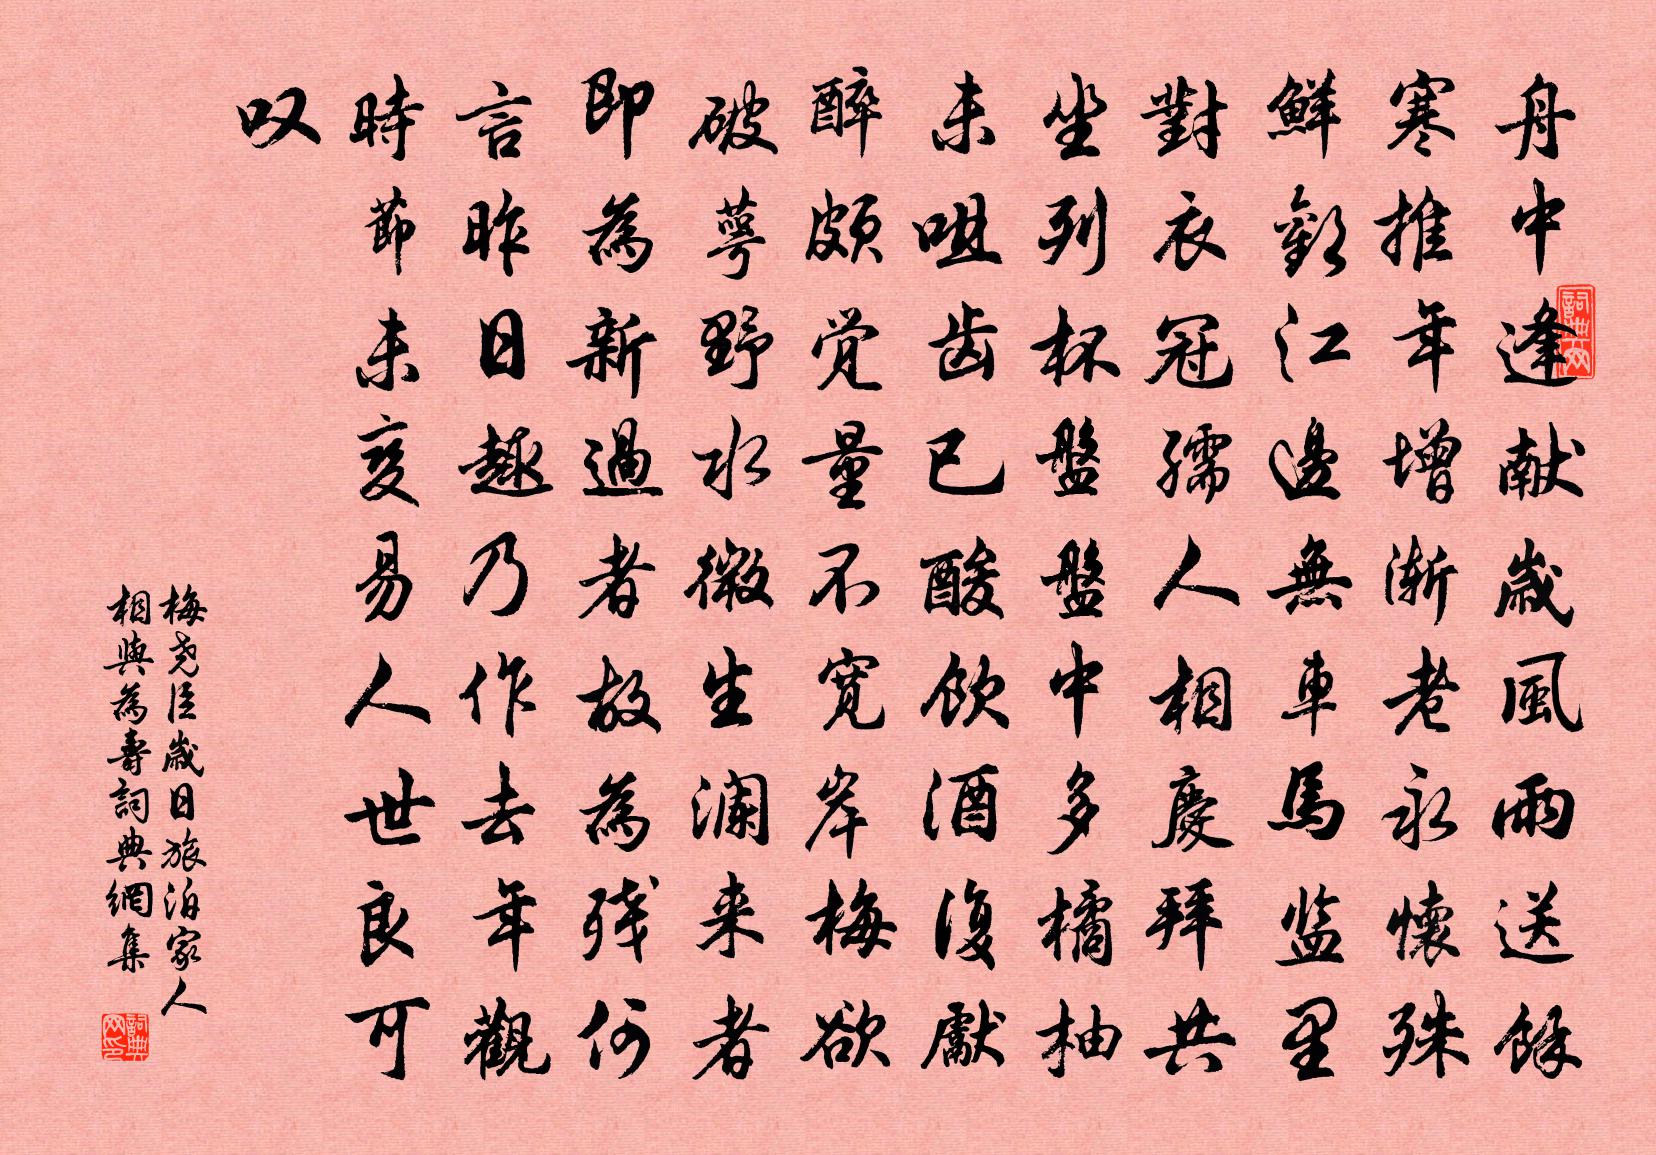 舟中逢献歲風雨送餘
寒推年增漸老永懷殊
鮮歡江邊無車馬监里
對衣冠孺人相慶拜共
坐列杯盤盤中多橘柚
未咀齿已酸飲酒復獻
醉頗觉量不宽岸梅欲
破萼野水微生澜来者
即為新過者故為残何
言昨日趣乃作去年觀
時節未变易人世良可
叹
梅尧臣歲日旅泊家人
相與為壽詞典網集
詞典网
詞典网印